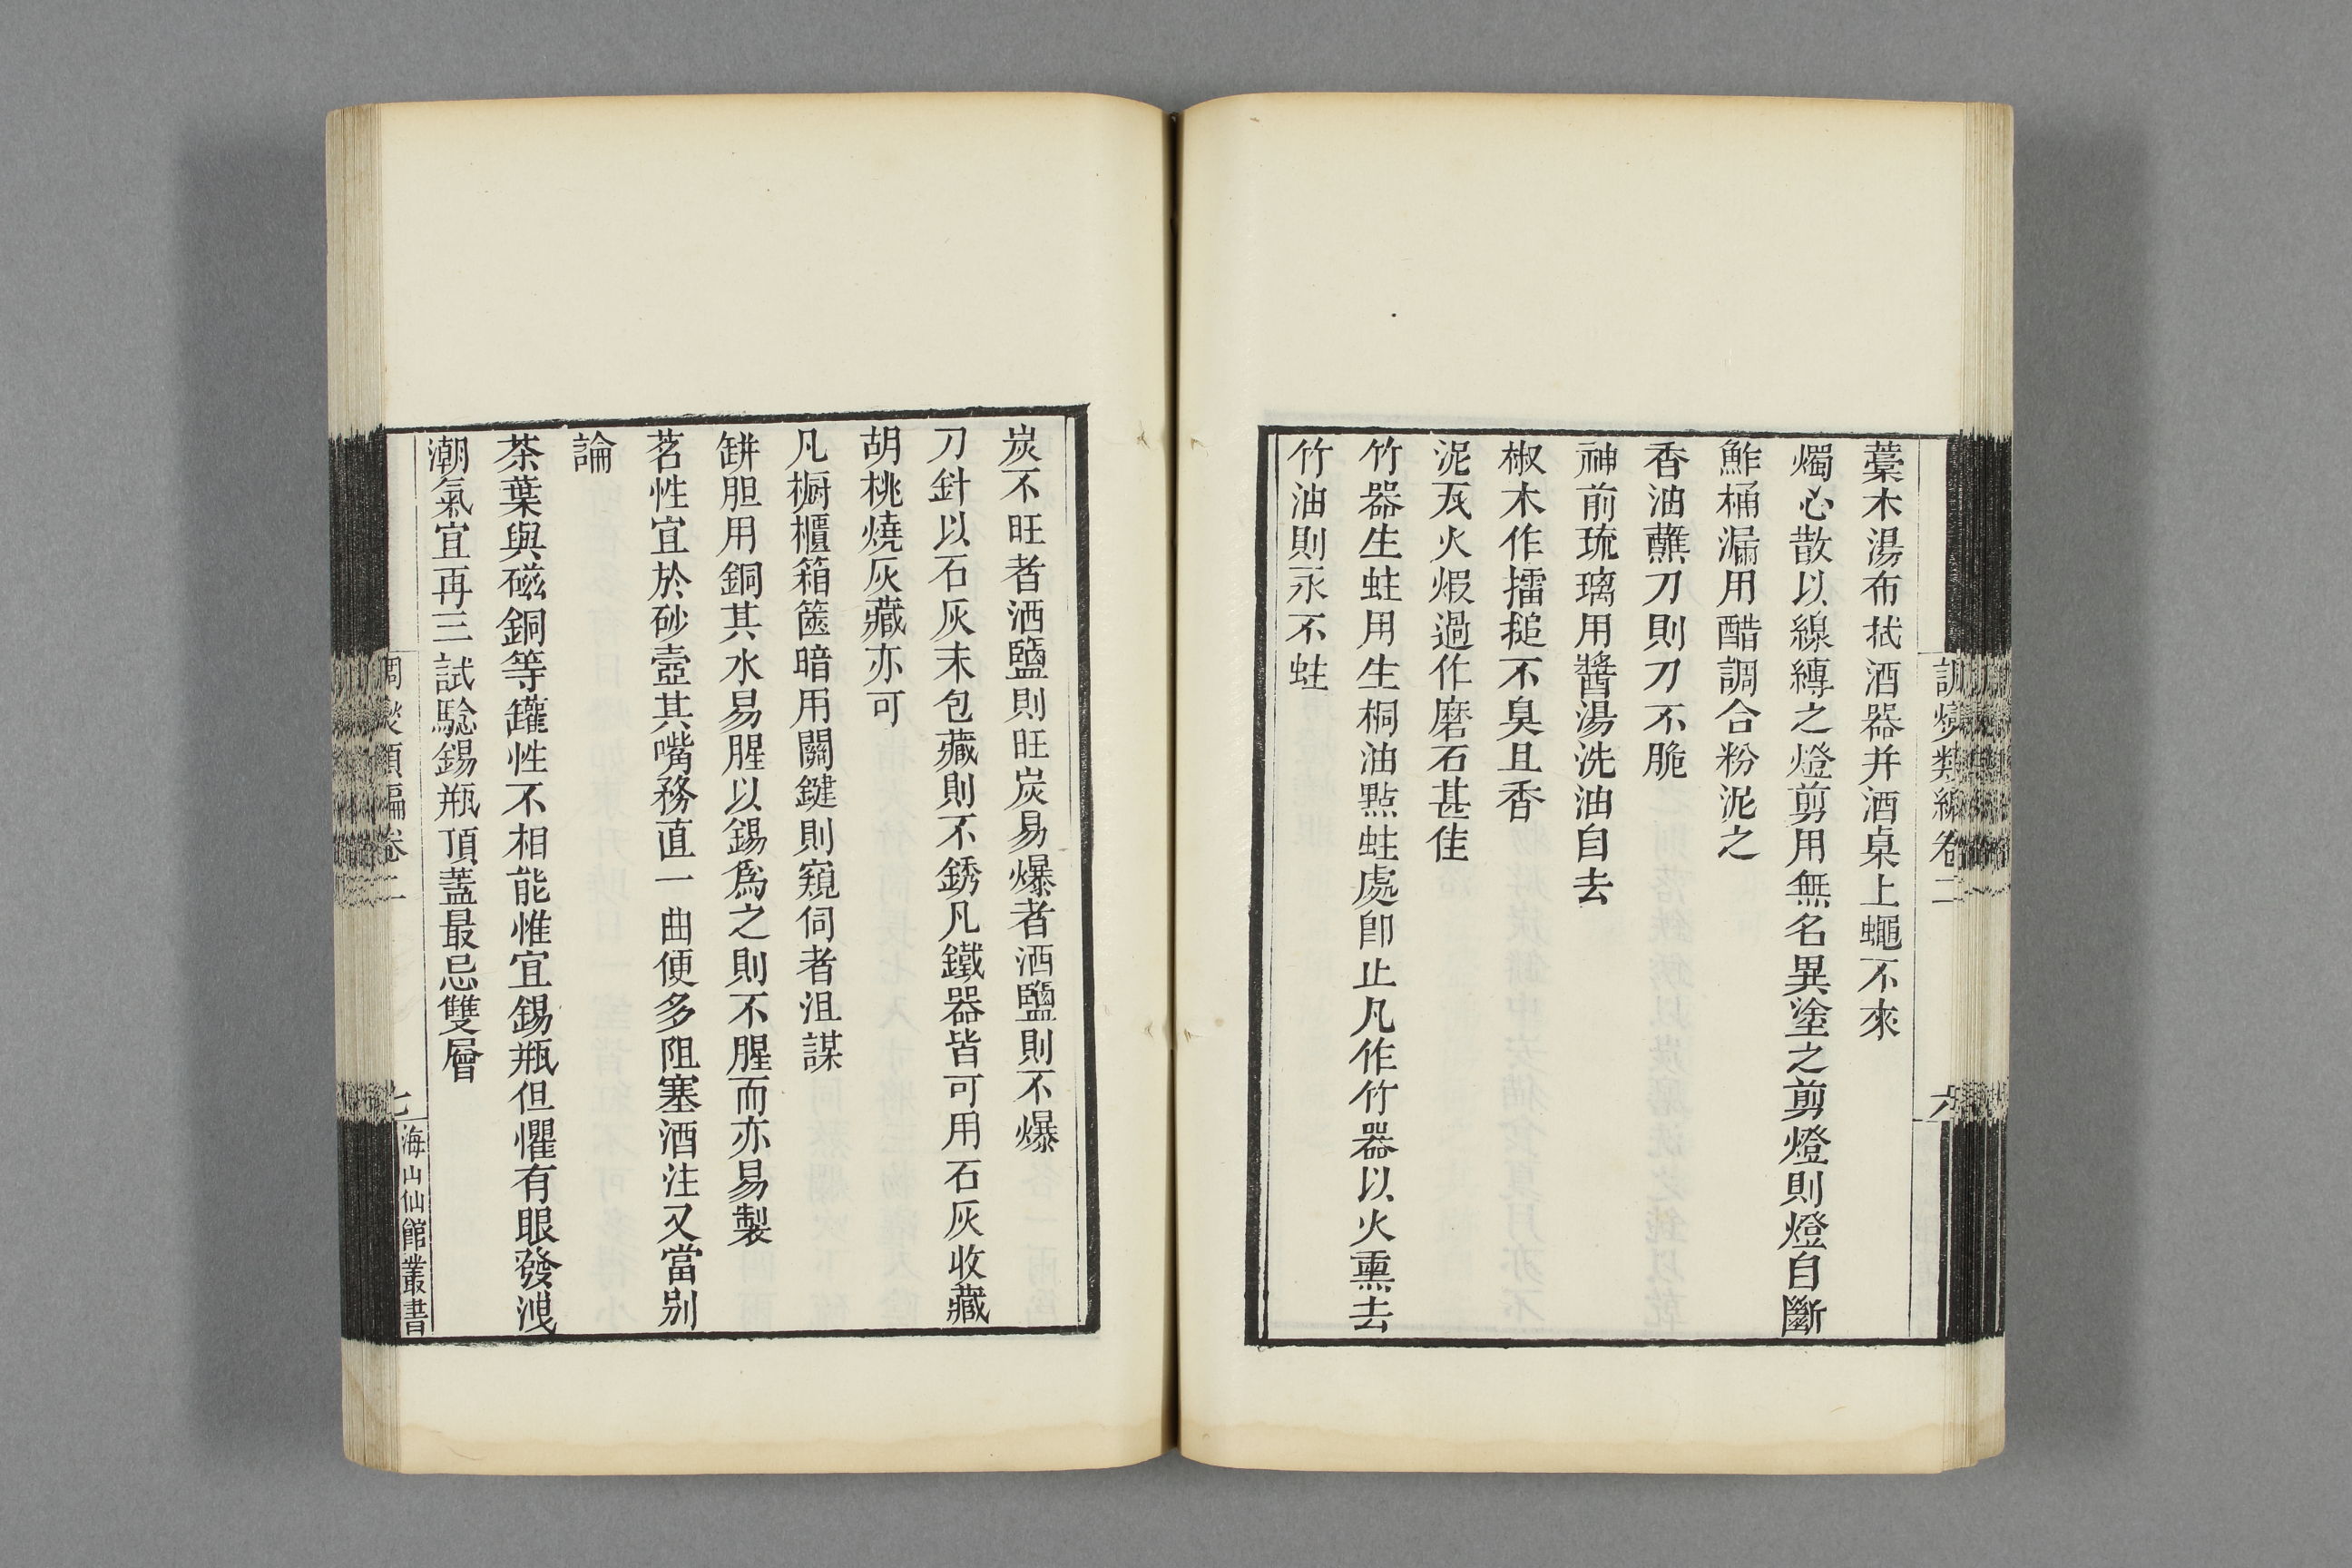 調燮類編卷二
六
藁木湯布拭酒器并酒桌上蠅不來
燭心散以線縛之燈剪用無名異塗之剪燈則燈自斷
鮓桶漏用醋調合粉泥之
香油蘸刀則刀不脆
神前琉璃用醬湯洗油自去
椒木作擂搥不臭且香
泥瓦火煆過作磨石甚佳
竹器生蛀用生桐油點蛀處卽止凡作竹器以火熏去
竹油則永不蛀
炭不旺者洒鹽則旺炭易爆者洒鹽則不爆
刀針以石灰末包藏則不銹凡鐵器皆可用石灰收藏
胡桃燒灰藏亦可
凡櫥櫃箱篋暗用關鍵則窺伺者沮謀
缾胆用銅其水易腥以錫爲之則不腥而亦易製
茗性宜於砂壺其嘴務直一曲便多阻塞酒注又當别
論
茶葉與磁銅等罐性不相能惟宜錫瓶但懼有眼發洩
潮氣宜再三試騐錫瓶頂蓋最忌雙層
調燮類編卷二
七
海山仙館叢書